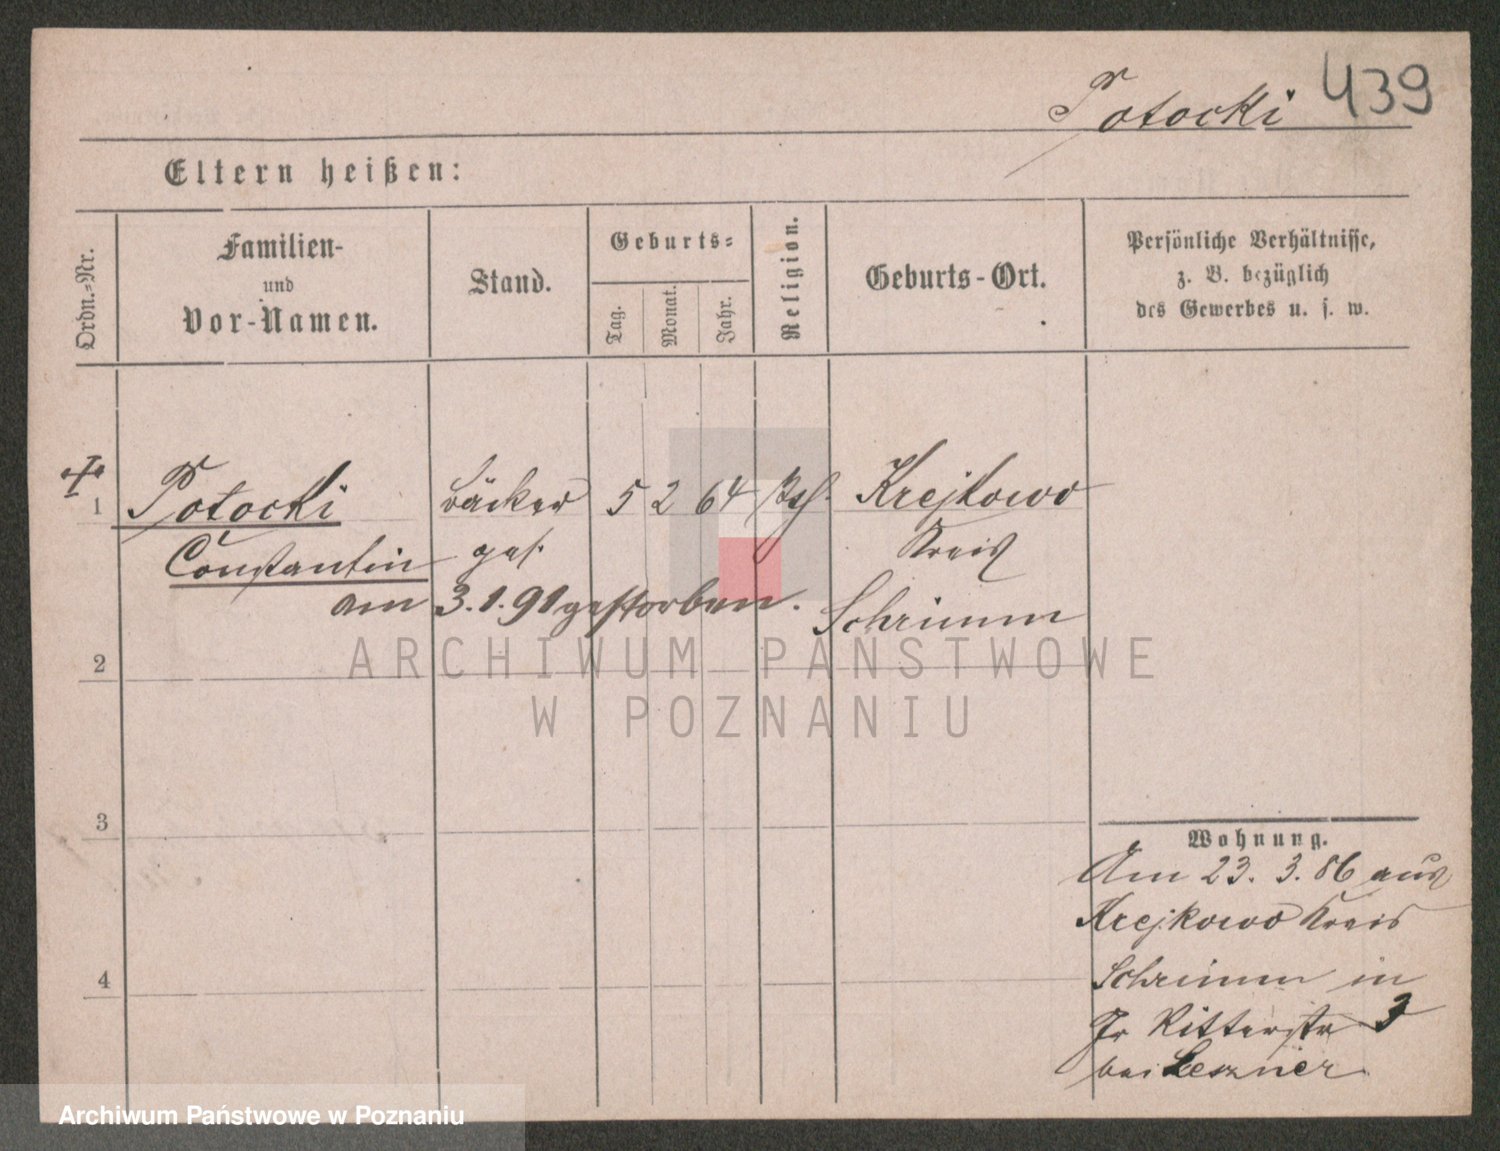 Potocki 439
Eltern heißen:
Ordn.-Nr.
Familien-
und
Vor-Namen.
Stand.
Geburts-
Tag.
Monat.
Jahr.
Religion.
Geburts-Ort.
Persönliche Verhältnisse,
z. B. bezüglich
des Gewerbes u. s. w.
1 Potocki Bäcker 5 2 64 Krejkowo
Constantin ges. Kreis
am 3.1.91 gestorben. Schrimm
2
3
4
Wohnung.
Am 23. 3. 86 aus
Krejkowo Kreis
Schrimm in
Ritterstr 3
bei Leszner
ARCHIWUM PAŃSTWOWE
W POZNANIU
Archiwum Państwowe w Poznaniu